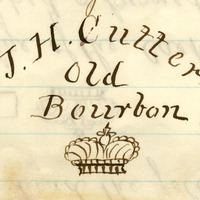 J. H. Cutter
Old
Bourbon